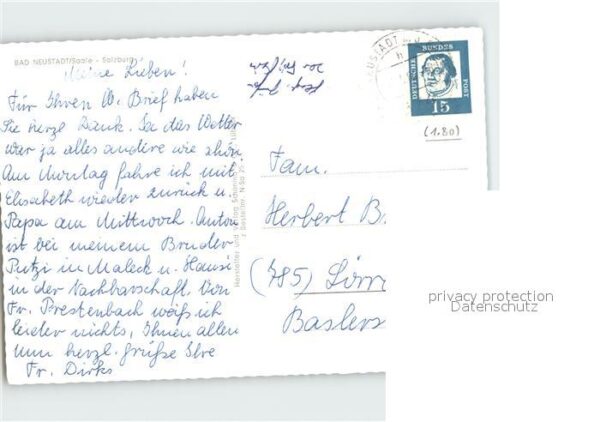 BAD NEUSTADT/Saale - Salzburg
Meine Lieben!
Für Ihren lb. Brief haben
Sie herzl. Dank. Ja das Wetter
war ja alles andere wie schön
Am Montag fahre ich mit
Elisabeth wieder zurück u.
Papa am Mittwoch. Anton
ist bei meinem Bruder
Putzi in Maleck u. Hause
in der Nachbarschaft. Von
Fr. Prestenbach weiß ich
leider nichts, Ihnen allen
nun herzl. Grüße Ihre
Fr. Dirks
Hersteller und Verlag Schöning
Bestellnr. N Sa
NEUSTADT
DEUTSCHE BUNDESPOST
15
(1.80)
Fam.
Herbert B.
(785) Lörr
Baslers
privacy protection
Datenschutz